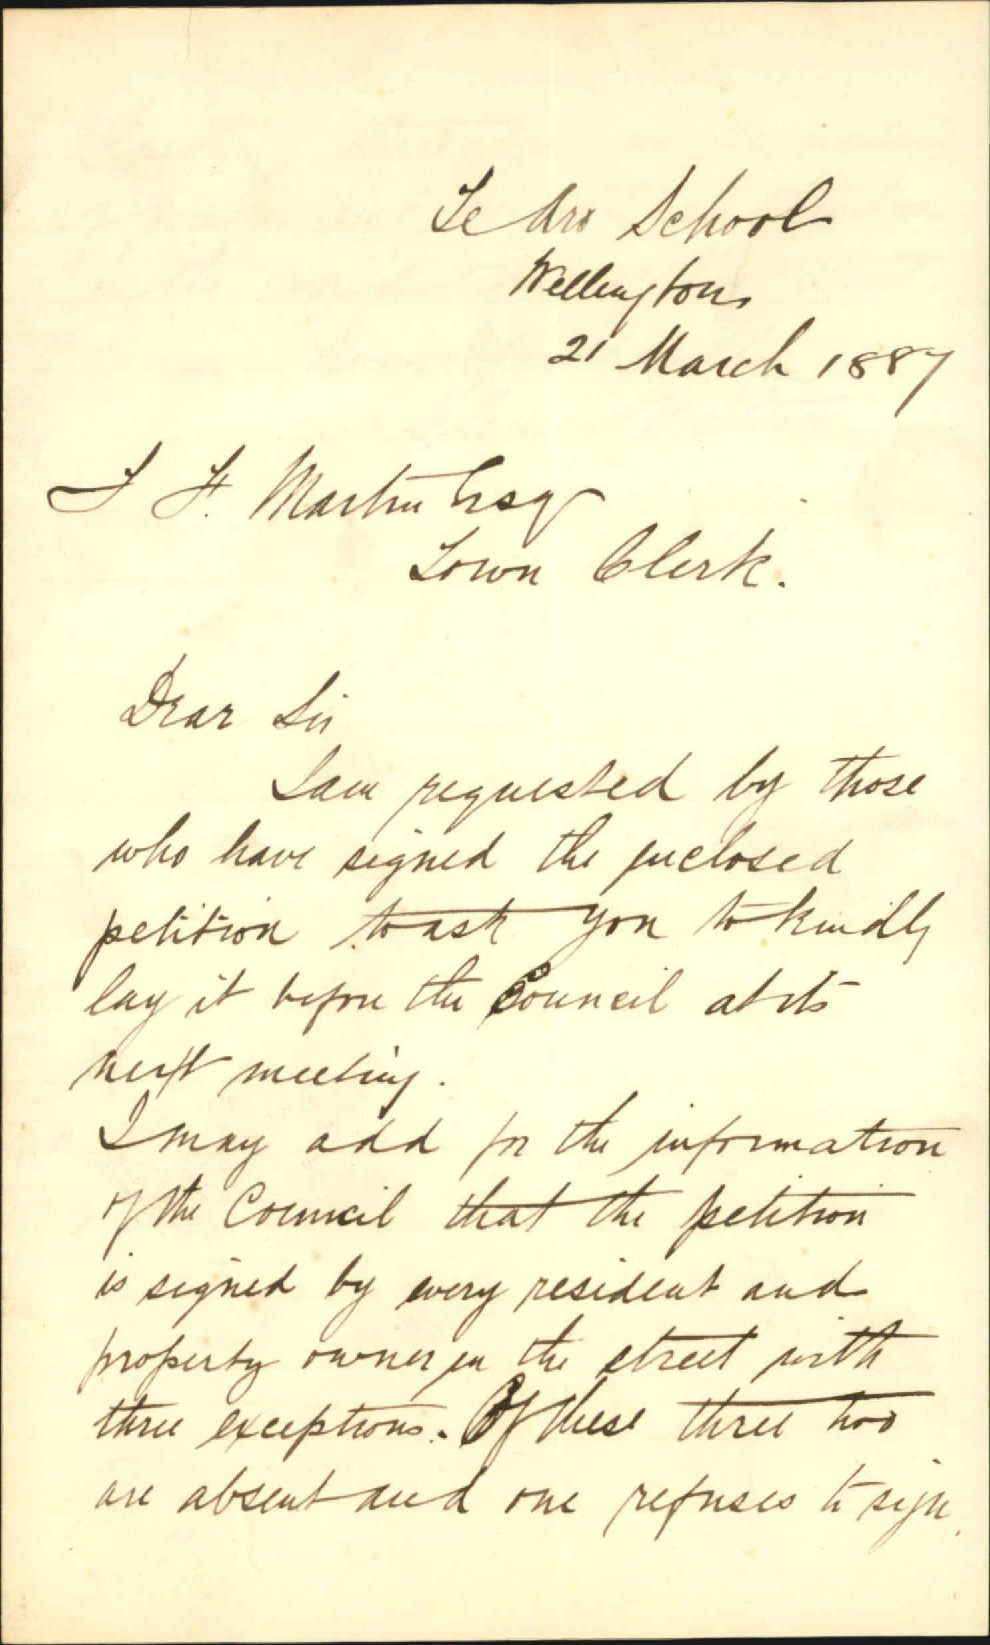 Te Aro School
Wellington
21 March 1887
F. F. Martin Esq
Town Clerk.
Dear Sir
I am requested by those
who have signed the enclosed
petition to ask you to kindly
lay it before the Council at its
next meeting.
I may add for the information
of the Council that the petition
is signed by every resident and
property owner in the street with
three exceptions. Of these three two
are absent and one refuses to sign.